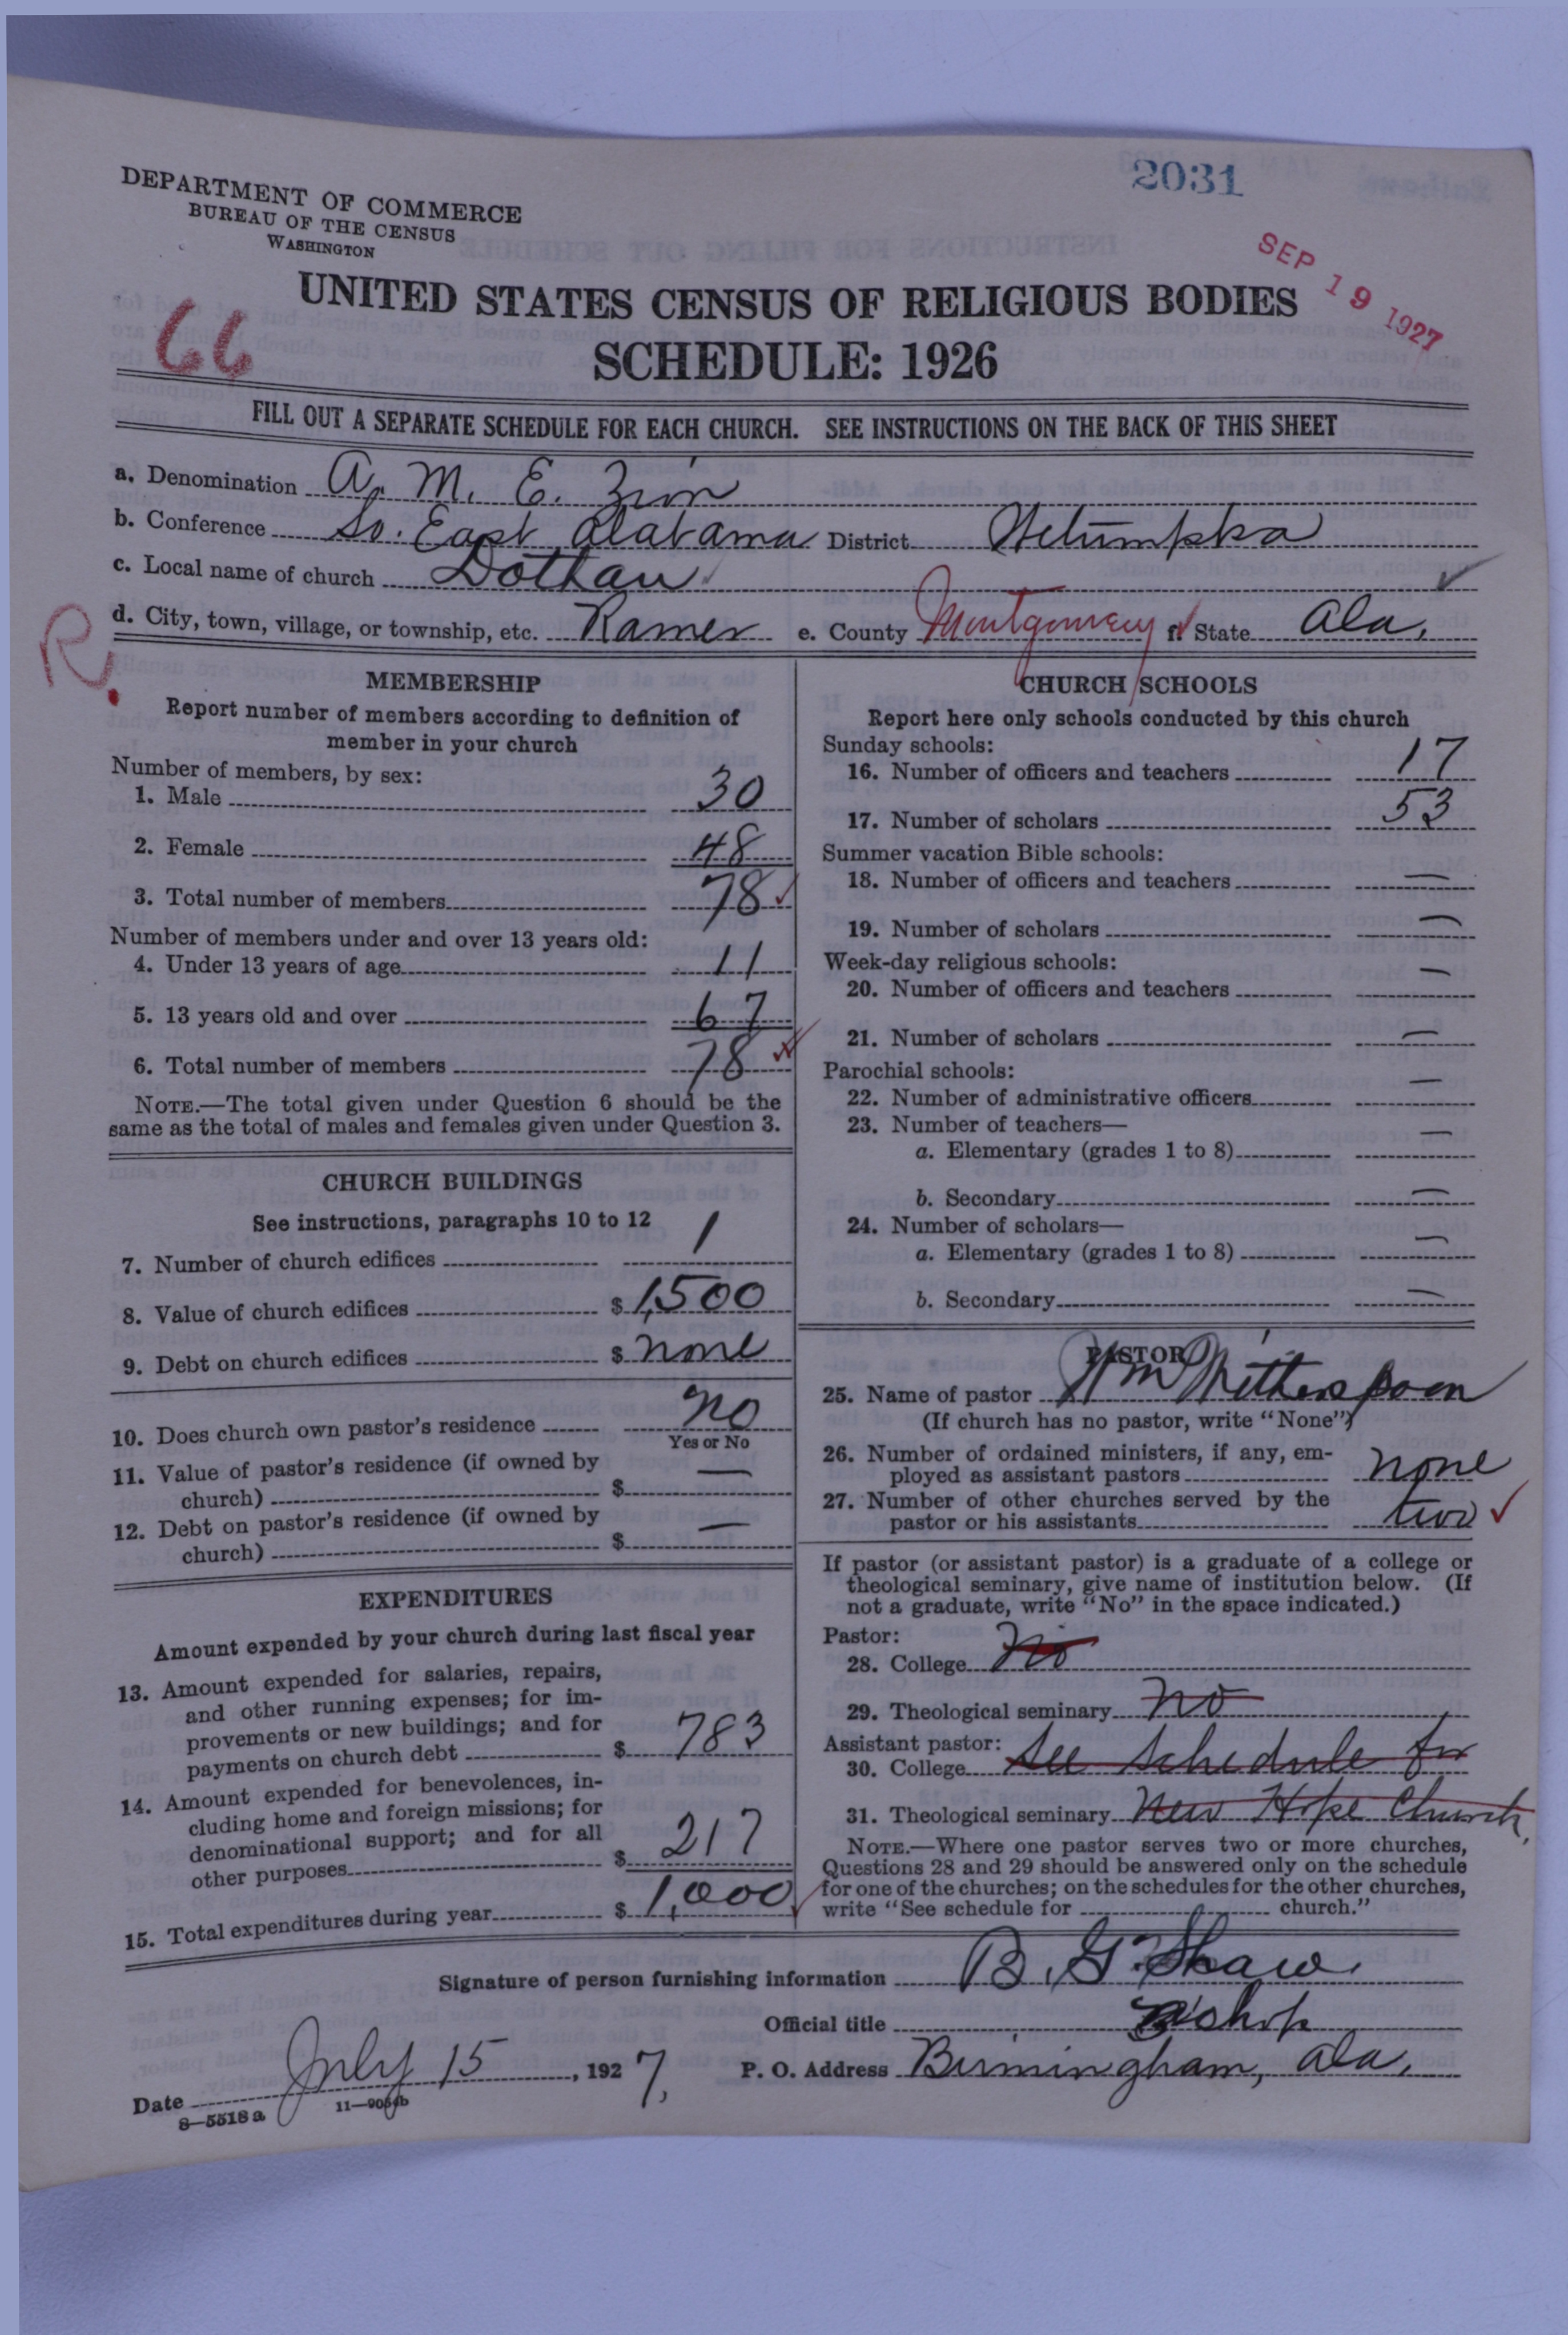 2031
DEPARTMENT OF COMMERCE
BUREAU OF THE CENSUS
WASHINGTON
SEP 19 1927
UNITED STATES CENSUS OF RELIGIOUS BODIES
66
SCHEDULE: 1926
FILL OUT A SEPARATE SCHEDULE FOR EACH CHURCH. SEE INSTRUCTIONS ON THE BACK OF THIS SHEET
a. Denomination A. M. E. Zion
b. Conference So. East Alabama District Wetumpka
c. Local name of church Dothan ✓
R.
d. City, town, village, or township, etc. Ramer e. County Montgomery f. State Ala.
MEMBERSHIP
Report number of members according to definition of
member in your church
Number of members, by sex:
1. Male 30
2. Female 48
3. Total number of members 78 ✓
Number of members under and over 13 years old:
4. Under 13 years of age 11
5. 13 years old and over 67
6. Total number of members 78
NOTE.—The total given under Question 6 should be the
same as the total of males and females given under Question 3.
CHURCH BUILDINGS
See instructions, paragraphs 10 to 12
7. Number of church edifices 1
8. Value of church edifices $ 1,500
9. Debt on church edifices $ none
10. Does church own pastor's residence no
Yes or No
11. Value of pastor's residence (if owned by
church) $ —
12. Debt on pastor's residence (if owned by
church) $ —
EXPENDITURES
Amount expended by your church during last fiscal year
13. Amount expended for salaries, repairs,
and other running expenses; for im-
provements or new buildings; and for
payments on church debt $ 783
14. Amount expended for benevolences, in-
cluding home and foreign missions; for
denominational support; and for all
other purposes $ 217
15. Total expenditures during year $ 1,000
CHURCH SCHOOLS
Report here only schools conducted by this church
Sunday schools:
16. Number of officers and teachers 17
17. Number of scholars 53
Summer vacation Bible schools:
18. Number of officers and teachers —
19. Number of scholars —
Week-day religious schools:
20. Number of officers and teachers —
21. Number of scholars —
Parochial schools:
22. Number of administrative officers —
23. Number of teachers—
a. Elementary (grades 1 to 8) —
b. Secondary —
24. Number of scholars—
a. Elementary (grades 1 to 8) —
b. Secondary —
PASTOR
25. Name of pastor Wm Witherspoon
(If church has no pastor, write "None")
26. Number of ordained ministers, if any, em-
ployed as assistant pastors none
27. Number of other churches served by the
pastor or his assistants two ✓
If pastor (or assistant pastor) is a graduate of a college or
theological seminary, give name of institution below. (If
not a graduate, write "No" in the space indicated.)
Pastor:
28. College No
29. Theological seminary no
Assistant pastor:
30. College See schedule for
31. Theological seminary New Hope Church.
NOTE.—Where one pastor serves two or more churches,
Questions 28 and 29 should be answered only on the schedule
for one of the churches; on the schedules for the other churches,
write "See schedule for church."
Signature of person furnishing information B. G. Shaw.
Official title Bishop
Date July 15, 1927, P. O. Address Birmingham, Ala.
8—5518 a 11—9054b